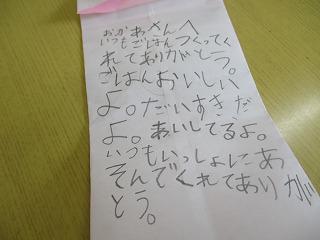 おかあさんへ
いつもごはんつくってく
れてありがとう。
ごはんおいしい
よ。だいすきだ
よ。あいしてるよ。
いつもいっしょにあ
そんでくれてありが
とう。